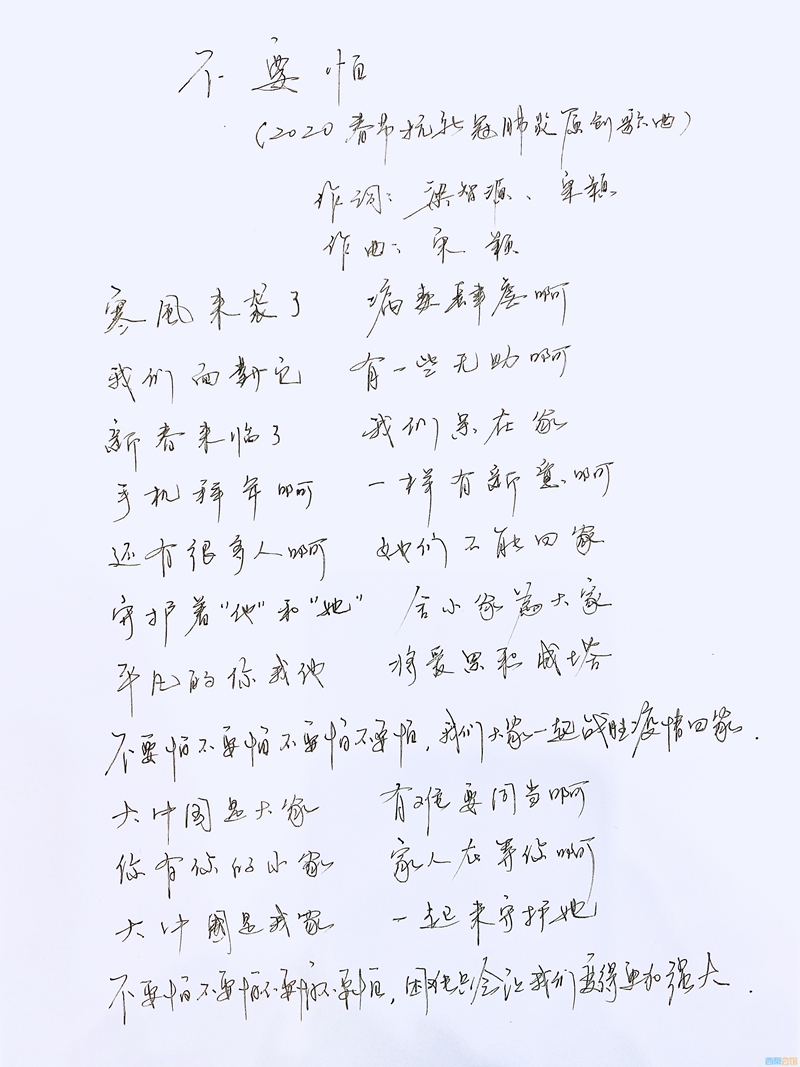 不要怕
（2020春节抗新冠肺炎原创歌曲）
作词：梁智源、宋颖
作曲：宋颖
寒风来袭了 病毒肆虐啊
我们面对它 有一些无助啊
新春来临了 我们呆在家
手机拜年啊 一样有新意啊
还有很多人啊 她们不能回家
守护着“他”和“她” 舍小家為大家
平凡的你我他 将爱累积成塔
不要怕不要怕不要怕不要怕，我们大家一起战胜疫情回家．
大中国是大家 有难要同当啊
你有你的小家 家人在等你啊
大中國是我家 一起来守护她
不要怕不要怕不要怕不要怕，困难只会让我们变得更加强大．